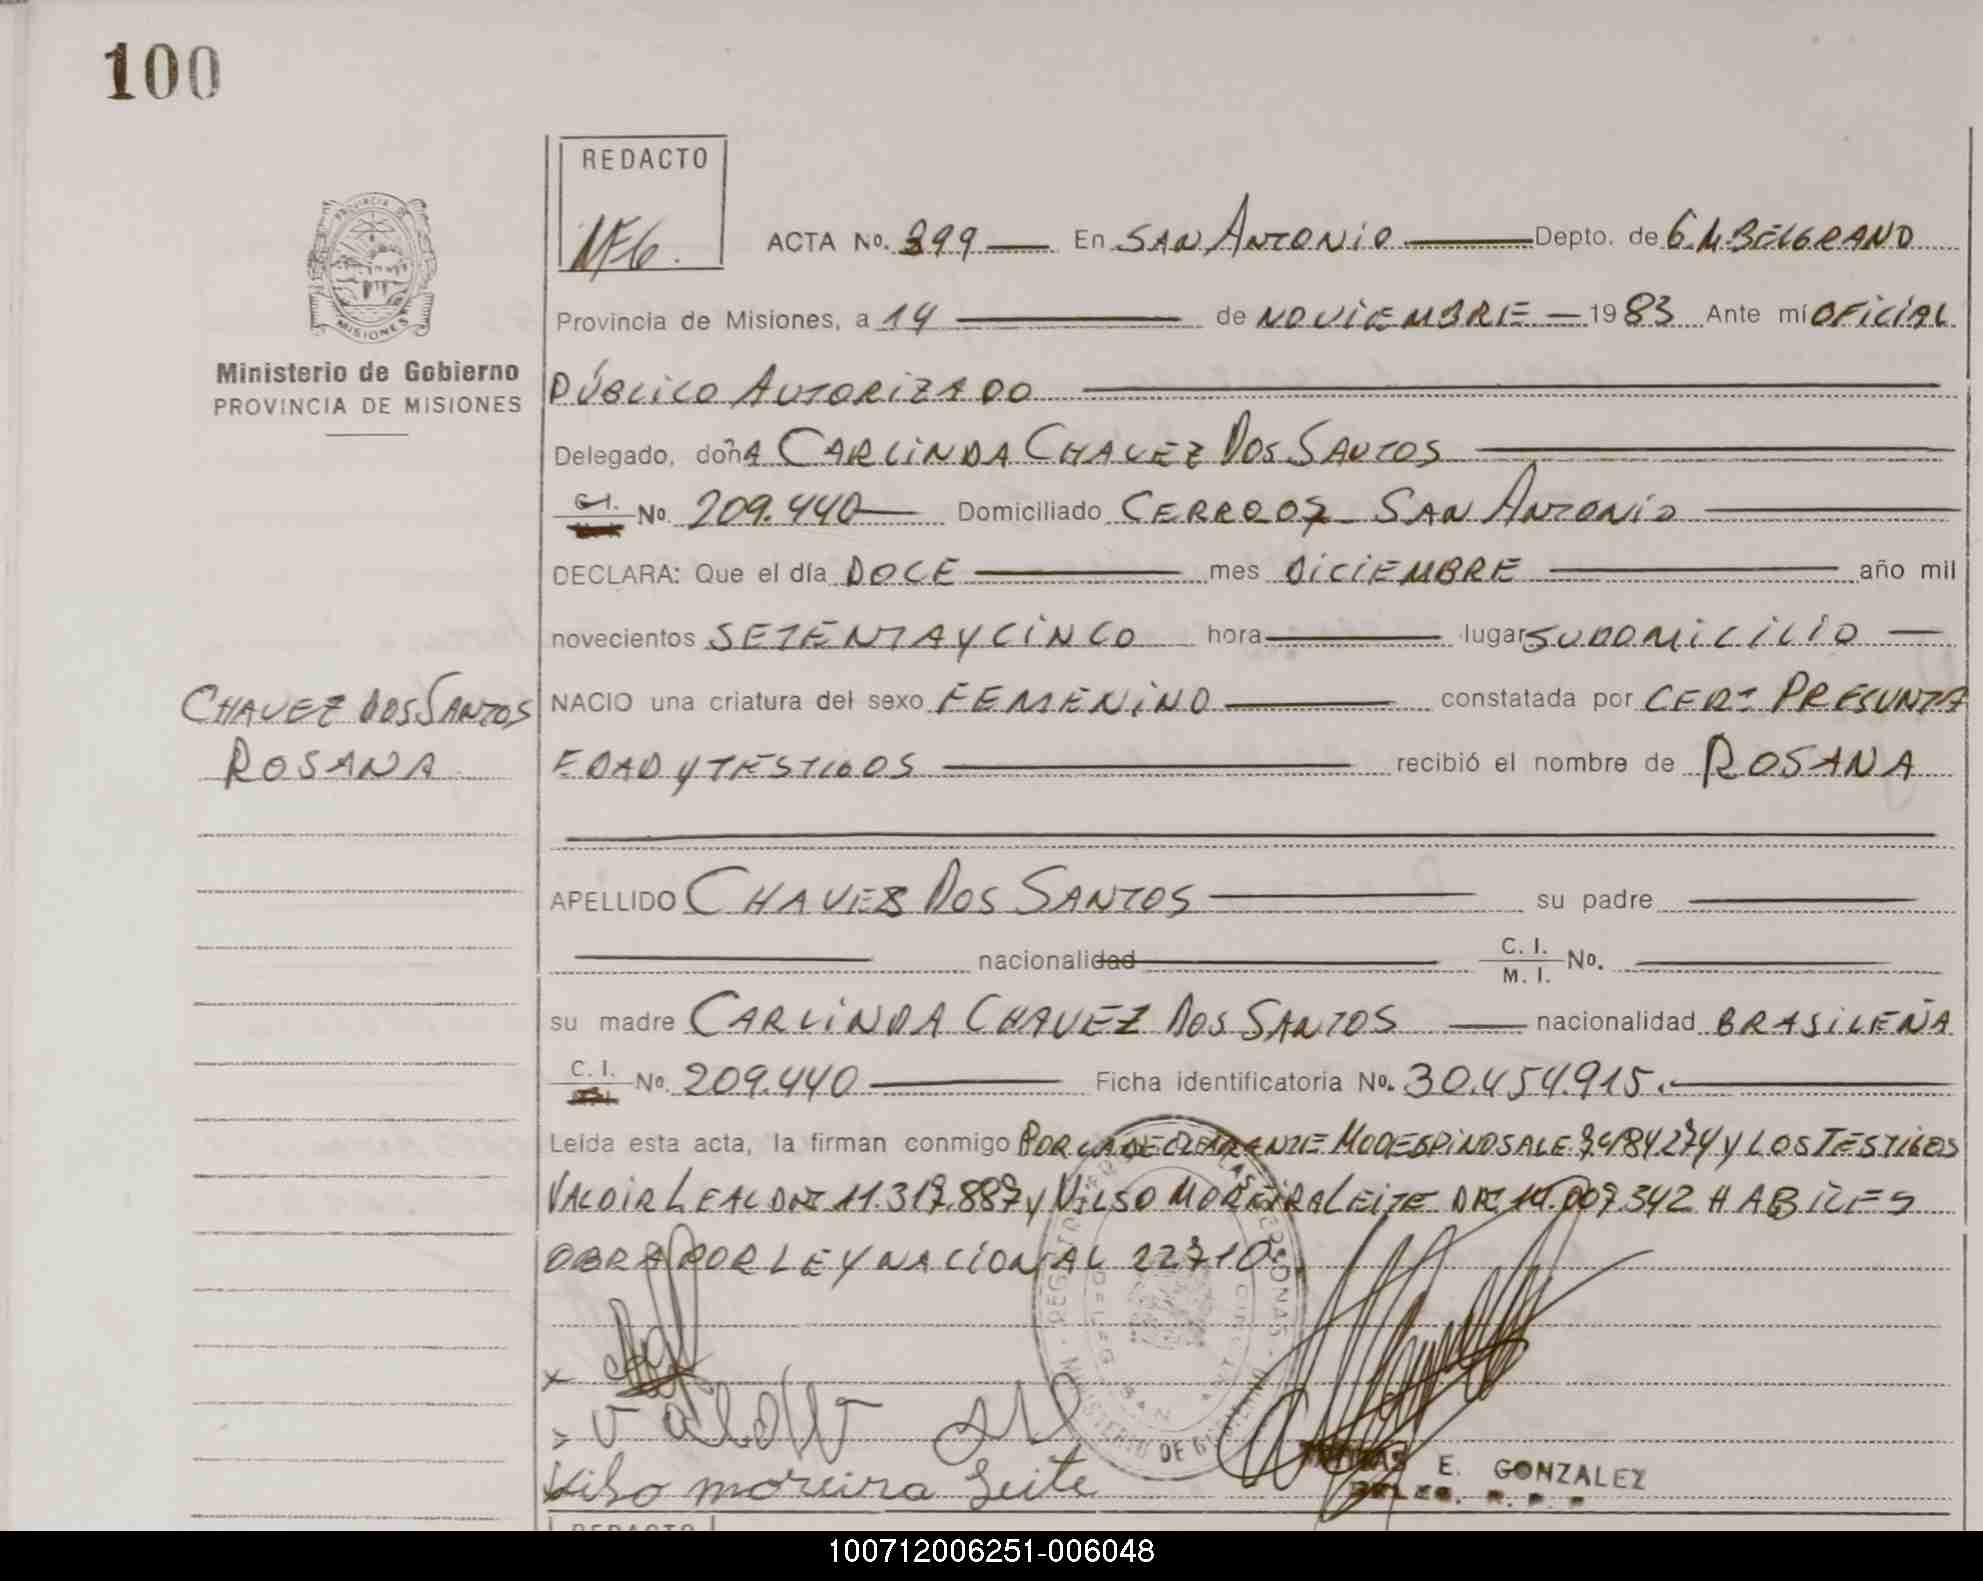 100
REDACTO
ACTA No. 399 En SAN ANTONIO Depto. de G.M. BELGRANO
PROVINCIA DE MISIONES
Provincia de Misiones, a 14 de NOVIEMBRE 1983 Ante mí OFICIAL
Ministerio de Gobierno
PROVINCIA DE MISIONES
PÚBLICO AUTORIZADO
Delegado, doña CARLINDA CHAVEZ DOS SANTOS
C.I. No. 209.440 Domiciliado CERRO 07 SAN ANTONIO
DECLARA: Que el día DOCE mes DICIEMBRE año mil
novecientos SETENTA Y CINCO hora lugar SU DOMICILIO
CHAVEZ DOS SANTOS
ROSANA
NACIO una criatura del sexo FEMENINO constatada por CERT PRESUNTA
EDAD Y TESTIGOS recibió el nombre de ROSANA
APELLIDO CHAVEZ DOS SANTOS su padre
nacionalidad C. I. M. I. No.
su madre CARLINDA CHAVEZ DOS SANTOS nacionalidad BRASILEÑA
C. I. No. 209.440 Ficha identificatoria No. 30.454.915.
Leída esta acta, la firman conmigo POR LA DECLARANTE MOD ESPINOSA LE 7484274 Y LOS TESTIGOS
VALDIR LEAL DNI 11.317.887 Y VILSO MOREIRA LEITE DNI HABILES
OBRA POR LEY NACIONAL 22710.
Vilso moreira Leite
E. GONZALEZ
REDACTO
100712006251-006048